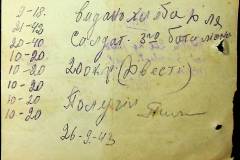 9-18.
21-43
20-40
10-20
10-20
10-20
10-20
10-20
выдано хлеба для
Солдат. 3го батальона
200 кгр (двести)
Получил
26-9-43